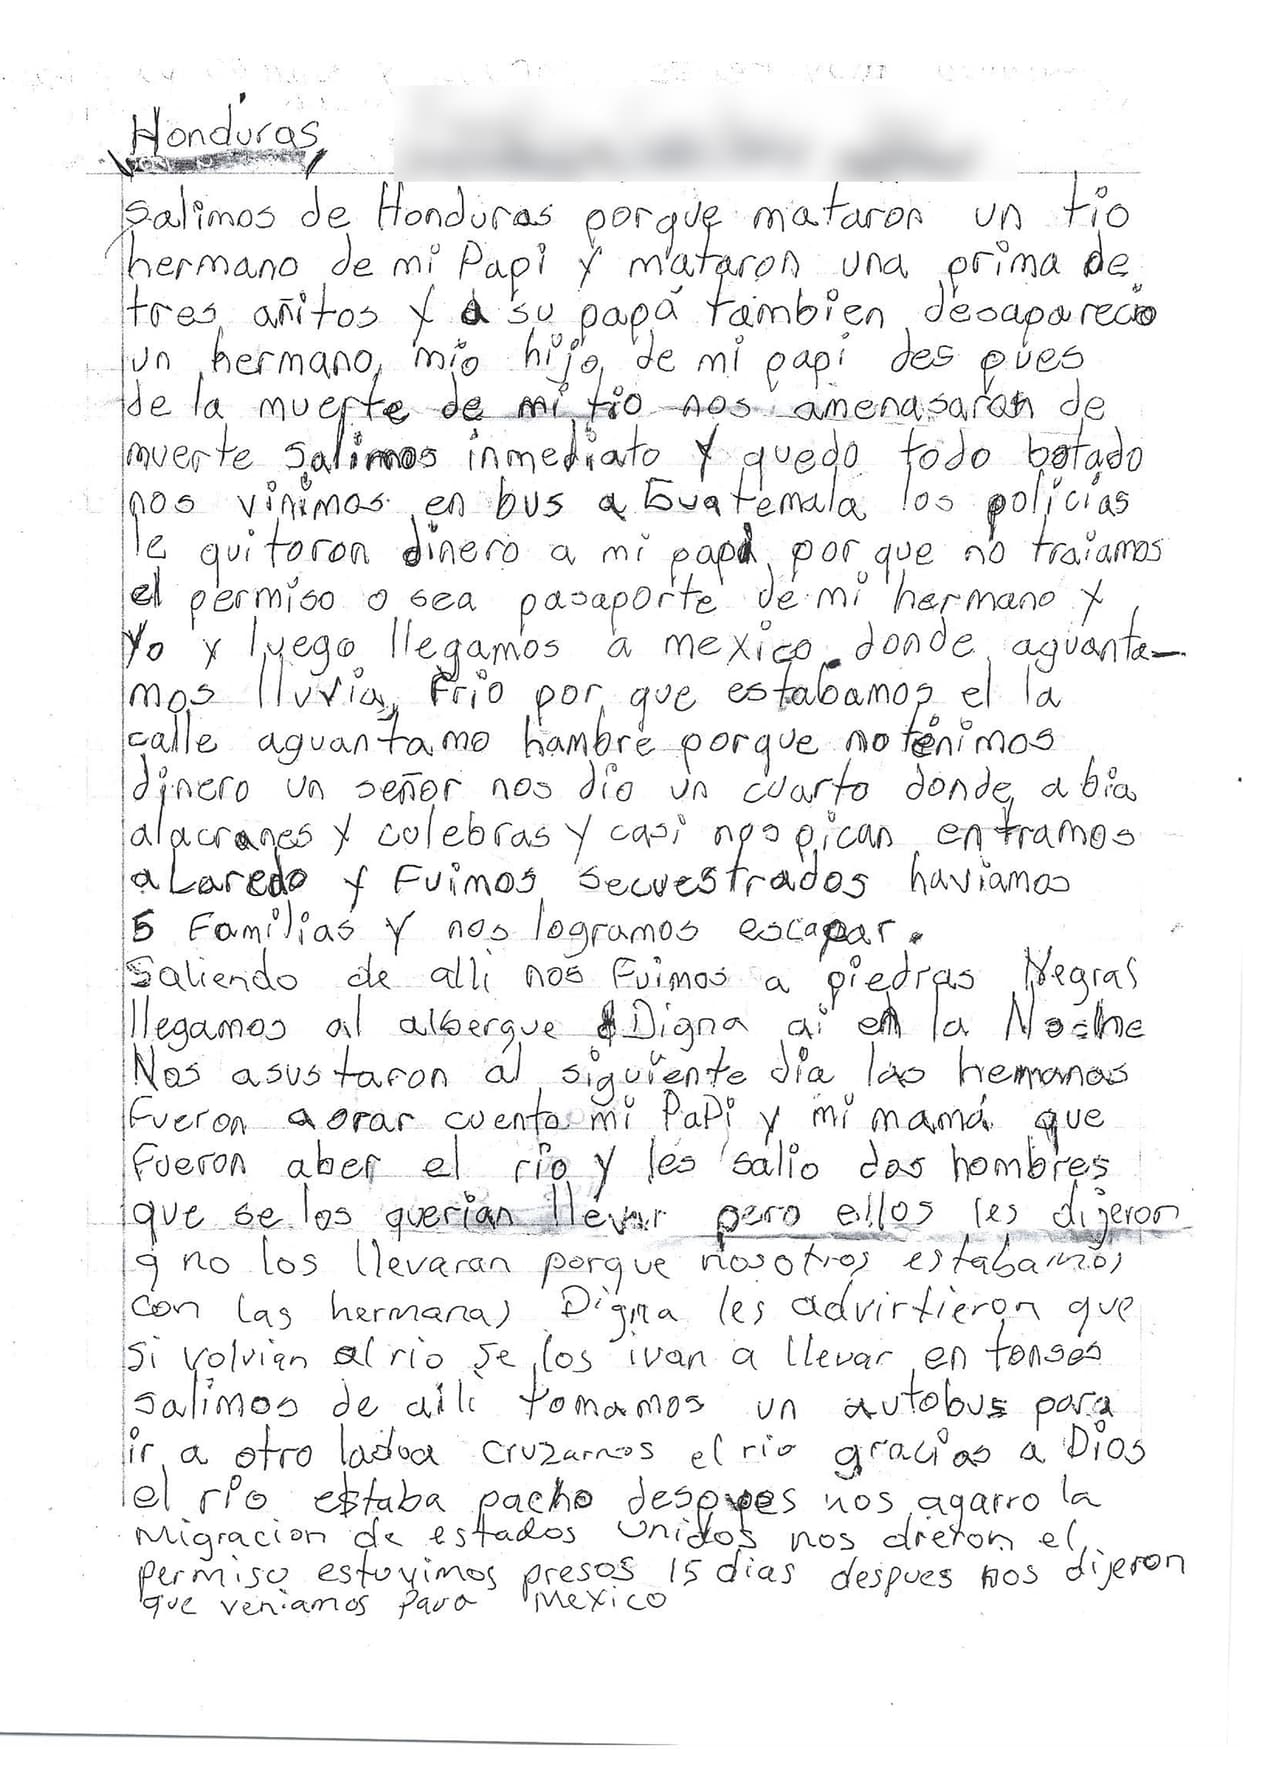 Honduras
Salimos de Honduras porque mataron un tio
hermano de mi Papi y mataron una prima de
tres añitos y a su papá tambien desaparecio
un hermano mio hijo de mi papi des pues
de la muerte de mi tio nos amenasaran de
muerte salimos inmediato y quedo todo botado
nos vinimos en bus a Guatemala los policias
le quitoron dinero a mi papá por que no traiamos
el permiso o sea pasaporte de mi hermano y
Yo y luego llegamos a mexico donde aguanta-
mos lluvia, Frio por que estabamos el la
calle aguantamo hambre porque no tenimos
dinero un señor nos dio un cuarto donde abia
alacranes y culebras y casi nos pican entramos
a Laredo y Fuimos secuestrados haviamos
5 Familias y nos logramos escapar.
Saliendo de alli nos Fuimos a piedras Negras
llegamos al albergue Digna ai en la Noche
Nos asustaron al siguiente dia las hemanas
Fueron a orar cuento mi PaPi y mi mamá que
Fueron aber el rio y les salio dos hombres
que se los querian llevar pero ellos les dijeron
q no los llevaran porque nosotros estabamos
con las hermanas Digna les advirtieron que
si volvian al rio se los ivan a llevar en tonses
salimos de alli tomamos un autobus para
ir a otro ladoa cruzamos el rio gracias a Dios
el rio estaba pacho despues nos agarro la
Migracion de estados Unidos nos dieron el
permiso estuvimos presos 15 dias despues nos dijeron
que veniamos para Mexico